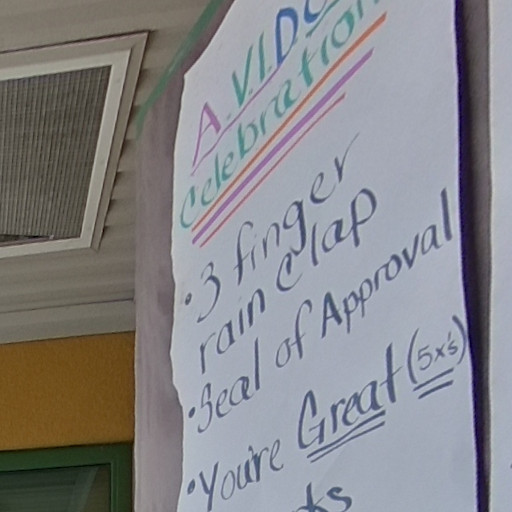 A.V.I.D.
Celebration
• 3 finger
rain clap
• Seal of Approval
• You're Great (5x's)